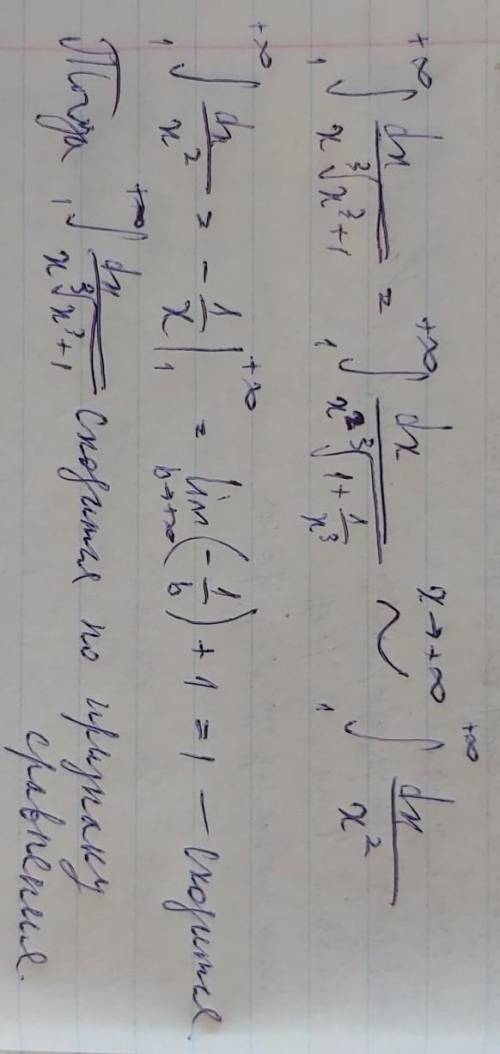 ₁∫^{+∞} dx / (x ∛(x³+1)) = ₁∫^{+∞} dx / (x² ∛(1+1/x³)) ~ (x→+∞) ₁∫^{+∞} dx / x²
₁∫^{+∞} dx / x² = -1/x |₁^{+∞} = lim_{b→+∞} (-1/b) + 1 = 1 – сходится
Тогда ₁∫^{+∞} dx / (x ∛(x³+1)) сходится по признаку
сравнения.